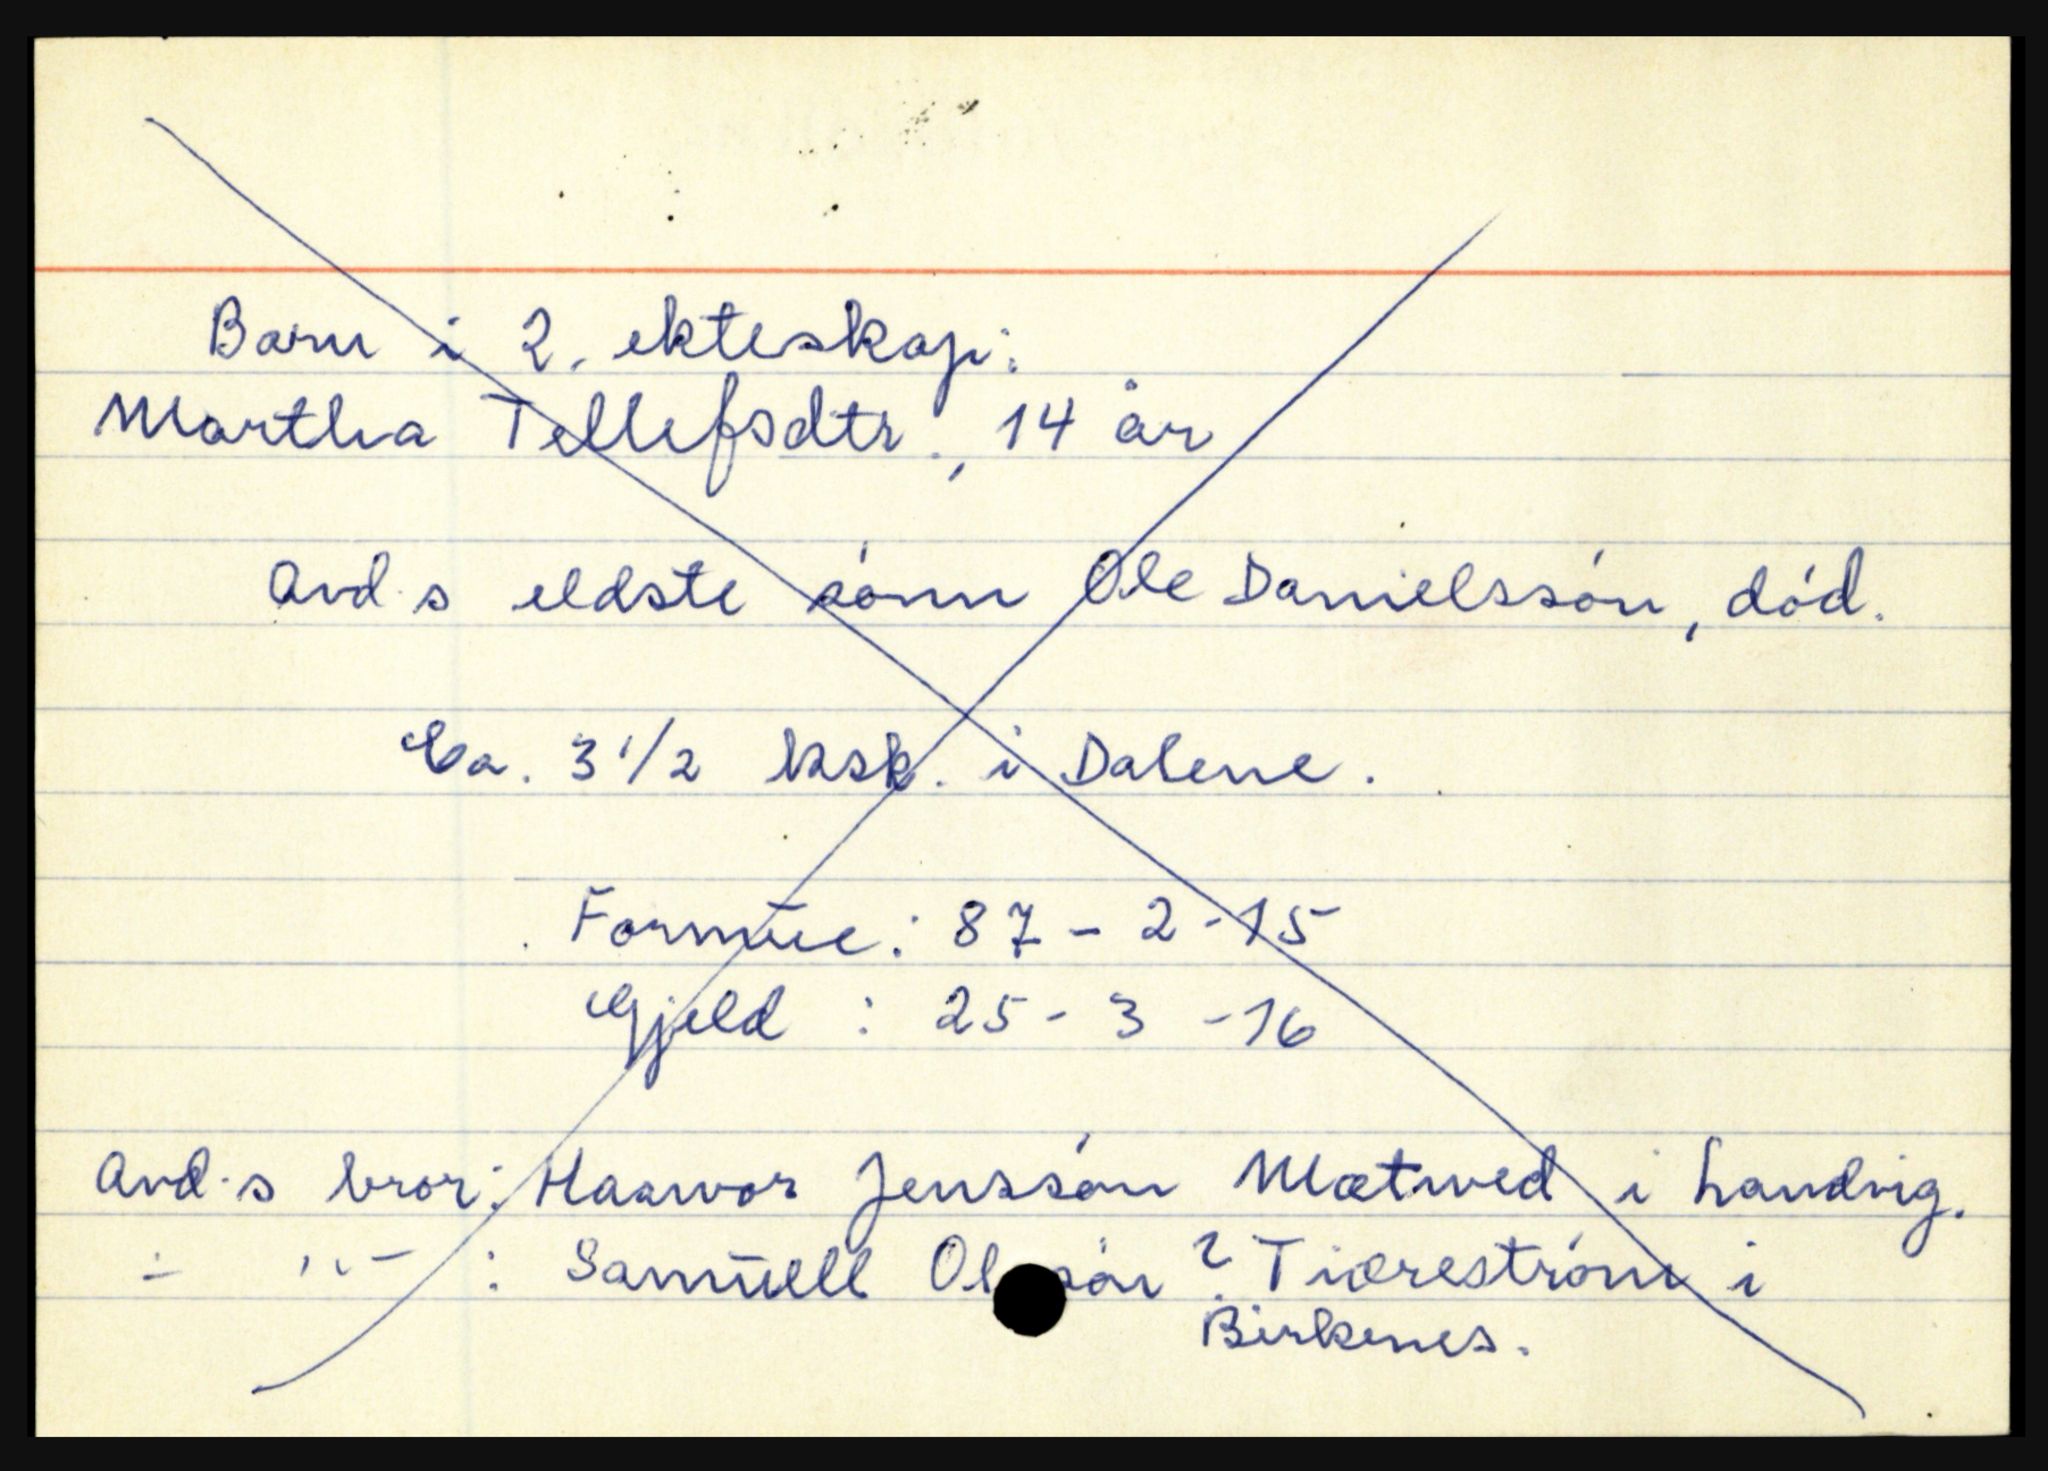 Barn i 2. ekteskap:
Martha Tellefsdtr., 14 år
Avd.s eldste sónn Ole Danielssón, dód.
Ca. 3 1/2 ksk. i Dalene.
Formue: 87 - 2 - 15
Gjeld : 25 - 3 - 16
Avd.s bror: Haavor Jenssón Mætved i Landvig.
- " - : Samuell Olssón ? Tiærestróm i
Birkenes.